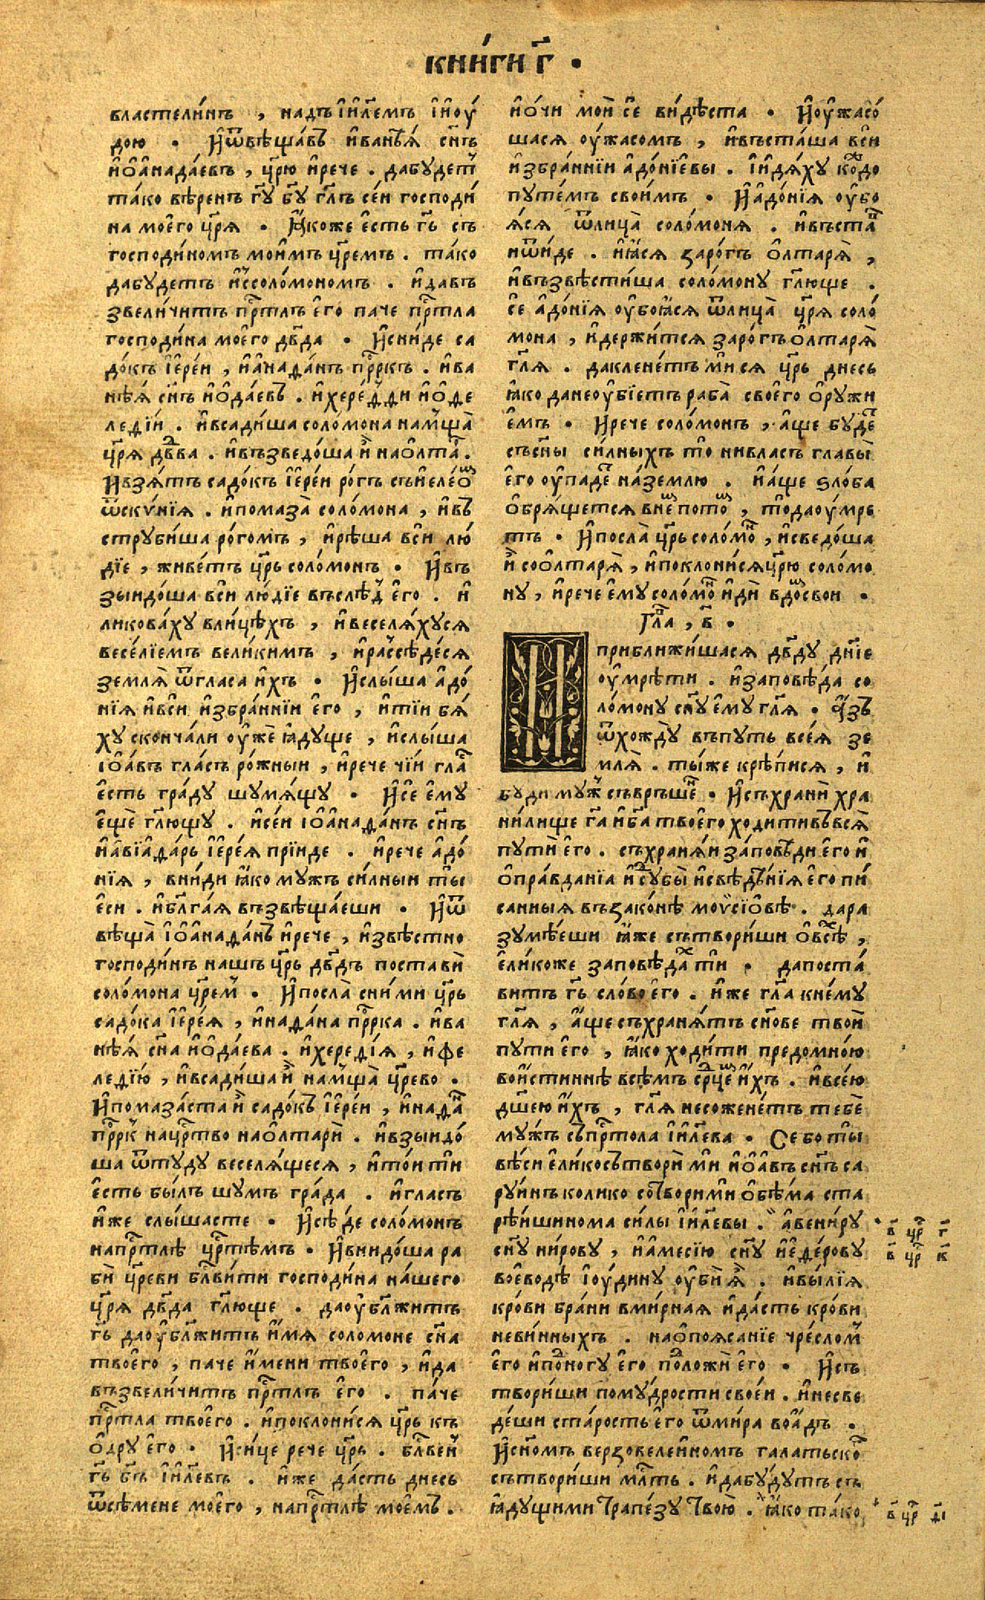 кни́ги г҃ .
властели́нъ , надъ і҆и҃лемъ і҆ і҆оу́
дою . И҆ ѿвѣща́въ и҆ване́я сн҃ъ
и҆о҆а҆нада́евъ , цр҃ю и҆рече . дабудетъ
та́ко вѣренъ гу҃ бу҃ гл҃ъ се́и господи́
на мое҆го цр҃я . Ꙗ҆коже е҆сть гь҃ съ
господи́номъ мои҆мъ цр҃емъ . та́ко
дабудетъ и҆ ссоло́мономъ . и҆ давъ
звели́читъ прⷭ҇тлъ е҆го паче прⷭ҇тла
господи́на мое҆го дв҃да . И҆сни́де са
до́къ і҆ере́и , и҆ а҆нада́нъ прⷪ҇ркъ . и҆ва
нѣ́я сн҃ъ и҆о҆да́евъ . и҆хере́дди и҆о҆фе
леді́и . и҆ всади́ша соломона на мща̀
цр҃я дв҃да . и҆възведо́ша и҆̀ на о҆лта́ .
И҆взѧ́тъ садо́къ і҆ере́и ро́гъ съ и҆еле́ѡ
ѿ ску́нїя . и҆помаза̀ соло́мона , и҆въ
струби́ша ро́гомъ , и҆рѣ́ша вси лю́
дїе , живе́тъ цр҃ь соло́монъ . И҆въ
зыидо́ша вси лю́дїе въслѣ́д е҆го . и҆
ликова́ху в ли́цѣхъ , и҆ веселя́хуся
весе́лїемъ вели́кимъ , и҆разсѣ́деся
земля̀ ѿ гласа и҆́хъ . И҆слы́ша а҆до́
нїя и҆вси и҆збра́ннїи е҆го , и҆тїи бя́
ху сконча́ли оу҆жѐ ꙗ҆дуще , и҆слы́ша
і҆о҆а́въ гла́съ ро́жныи , и҆рече чїи гла́
е҆сть гра́ду шумя́щу . И҆се е҆му
е҆щѐ гл҃ющу . и҆се́и і҆о҆а҆нада́нъ сн҃ъ
и҆а҆вїа҆да́рь і҆ере́я прїиде . и҆рече а҆до́
нїя , вни́ди ꙗ҆ко мужъ си́лныи ты̀
е҆си . и҆ бл҃га́я възвѣща́еши . И҆ ѿ
вѣща̀ і҆о҆а҆нада́нъ и҆рече , и҆звѣ́стно
господи́нъ нашъ цр҃ь дв҃дъ поставѝ
соло́мона цр҃емъ . И҆посла̀ сни́ми цр҃ь
садо́ка і҆ере́я , и҆нада́на прⷪ҇рка . и҆ва
нѣ́я сн҃а и҆о҆да́ева . и҆хереді́я , и҆фе
леді́ю , и҆всади́ша и҆̀ на мща̀ цр҃ево .
И҆помаза́ста и҆̀ садо́къ і҆ере́и , и҆нада́
прⷪ҇ркъ на црⷭ҇тво на о҆лтарѝ . и҆взыидо́
ша ѿту́ду веселя́щеся , и҆то́и ти
е҆сть бы́лъ шумъ гра́да . и҆гласъ
и҆́же слы́шасте . И҆сѣ́де соломонъ
на прⷭ҇тлѣ црⷭ҇тѣмъ . И҆внидо́ша ра
бѝ цр҃еви бл҃ви́ти господи́на на́шего
цр҃я дв҃да гл҃юще . даоу҆бл҃житъ
гь҃ даоу҆бл҃житъ и҆́мя соломоне сн҃а
твое҆го , паче и҆́мени твое҆го , и҆да
възвели́читъ прⷭ҇тлъ е҆го . па́че
прⷭ҇тла твое҆го . и҆поклони́ся цр҃ь къ
о҆дру е҆го . И҆си́це рече цр҃ь . бл҃ве́н
гь҃ бг҃ъ і҆и҃левъ . и҆́же да́сть днесь
ѿ сѣ́мене мое҆го , на прⷭ҇тлѣ мое҆мъ .
и҆о҆́чи мои҆ сѐ ви́дѣста . И҆оу҆жасо́
шася оу҆жасомъ , и҆въста́ша вси
и҆збра́ннїи а҆до́нїевы . і҆ и҆дя́ху кождо
путе́мъ свои́мъ . И҆ а҆до́нїя оу҆бо
я́ся ѿ лица̀ соломоня . и҆въста́
и҆ ѿи́де . и҆ ꙗ҆ся за ро́гъ о҆лтаря̀ ,
и҆възвѣсти́ша соло́мону гл҃юще .
се а҆до́нїя оу҆боя́ся ѿ лица̀ цр҃я соло
мона , и҆держи́тся за ро́гъ о҆лтаря̀
гл҃я . даклене́тъ ми ся цр҃ь днесь
ꙗ҆ко данеоу҆бїетъ раба̀ своего о҆ружи
е҆мъ . И҆рече соло́монъ , а҆ще бу́де
съ сн҃ы си́лныхъ то ни власъ главы̀
е҆го оу҆паде на зе́млю . и҆а҆́ще ѕло́ба
о҆брѧ́щется в не́ пото́ , то̀ да оу҆мре
тъ . И҆посла̀ цр҃ь соломо́ , и҆сведо́ша
и҆̀ со о҆лтаря̀ , и҆поклони́ся цр҃ю соломо
ну , и҆рече е҆му соломо́ и҆дѝ в до́ свои .
Гла̀ , в҃ .
И
прибли́жи́шася дв҃ду дн҃їе
оу҆мрѣ́ти . и҆заповѣ́да со
ло́мону сн҃у е҆му гл҃я . А҆зъ
ѿхожду̀ въ путь всея̀ зе
мля̀ . ты́же крѣ́пися , и҆
буди му́ж съвръше́ . И҆съхранѝ хра
ни́лище га҃ и҆ ба҃ твое҆го ходи́ти въ вся̀
путѝ е҆го . съхраня́и за́повѣди е҆го и҆
о҆правда́нїа и҆ судбы̀ и҆свѣдѣ́нїя е҆го пи́
санныя въ зако́нѣ моѵ҆сїо́вѣ . да ра
зумѣ́еши ꙗ҆́же сътвори́ши о҆всѣ́ ,
е҆ли́коже заповѣ́да ти . да поста́
витъ гь҃ сло́во е҆го . и҆́же гл҃а кнему́
гл҃я , а҆́ще съхраня́тъ сн҃ове твоѝ
пути е҆го , ꙗ҆ко ходи́ти предомно́ю
вои́стиннѣ всѣ́мъ срⷣцемъ и҆́хъ . и҆все́ю
дш҃ею и҆́хъ , гл҃я несожене́тъ тебѐ
му́жъ съ прⷭ҇тола і҆и҃лева . Се бо ты̀
вѣ́си е҆лико сътворѝ ми и҆о҆а́въ сн҃ъ са
ру́инъ ко́лико сотвори́ми о҆бѣ́ма ста
рѣ́ишинома си́лы і҆и҃левы . а҆вени́ру
сн҃у ни́рову , и҆а҆месі́ю сн҃у и҆е҆де́рову
воево́дѣ і҆оу́дину оу҆бѝ ѧ҆̀ . и҆вылі́я
кро́ви бра́ни вми́рная и҆да́сть кро́ви
неви́нныхъ . на о҆поясанїе чре́сломъ
е҆го и҆по́дногу е҆го положѝ е҆го . И҆съ
твори́ши по му́дрости свое́и . и҆несве
де́ши ста́рость е҆го ѿ ми́ра во а҆́дъ .
И҆ сн҃омъ верзовеле́иномъ галатьско́
сътвори́ши мл҃ть . и҆дабу́дутъ съ
ꙗ҆ду́щими трапе́зу твою̀ . ꙗ҆ко та́ко
в҃ цр҃ г҃
в҃ цр҃ к҃
в҃ цр҃ д҃і